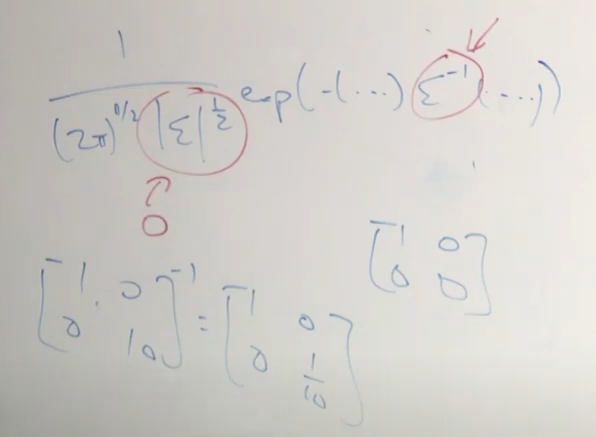 1
(2π)^n/2 |Σ|^1/2 exp(-(...) Σ^-1 (...))
0
[1 0
0 0]
[1 0
0 10]^-1 = [1 0
0 1/10]